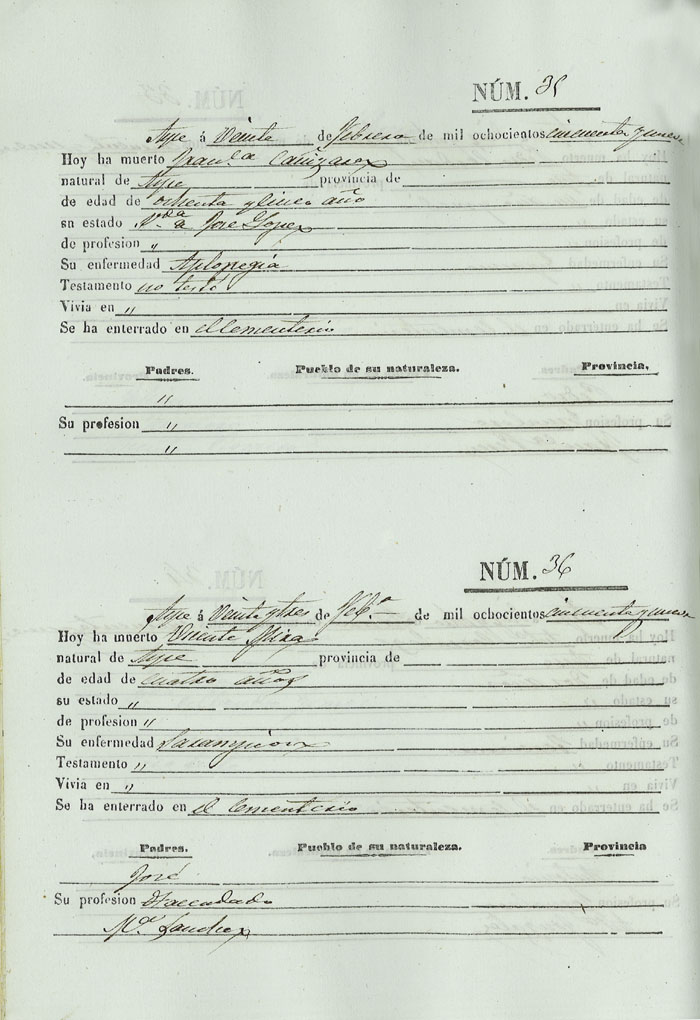 NÚM. 35
Aspe á Veinte de Febrero de mil ochocientos cincuenta y nueve
Hoy ha muerto Fran.ca Cañizares
natural de Aspe provincia de
de edad de ochenta y cinco año
su estado V.da de José Lopez
de profesion „
Su enfermedad Aplopegia
Testamento no testó
Vivia en „
Se ha enterrado en el Cementerio
Padres. Pueblo de su naturaleza. Provincia.
„
Su profesion „
„
NÚM. 36
Aspe á Veinte y tres de Feb.o de mil ochocientos cincuenta y nueve
Hoy ha muerto Vicente Mira
natural de Aspe provincia de
de edad de cuatro años
su estado „
de profesion „
Su enfermedad Sarampion
Testamento „
Vivia en „
Se ha enterrado en el Cementerio
Padres. Pueblo de su naturaleza. Provincia
José
Su profesion Hacendado
M.a